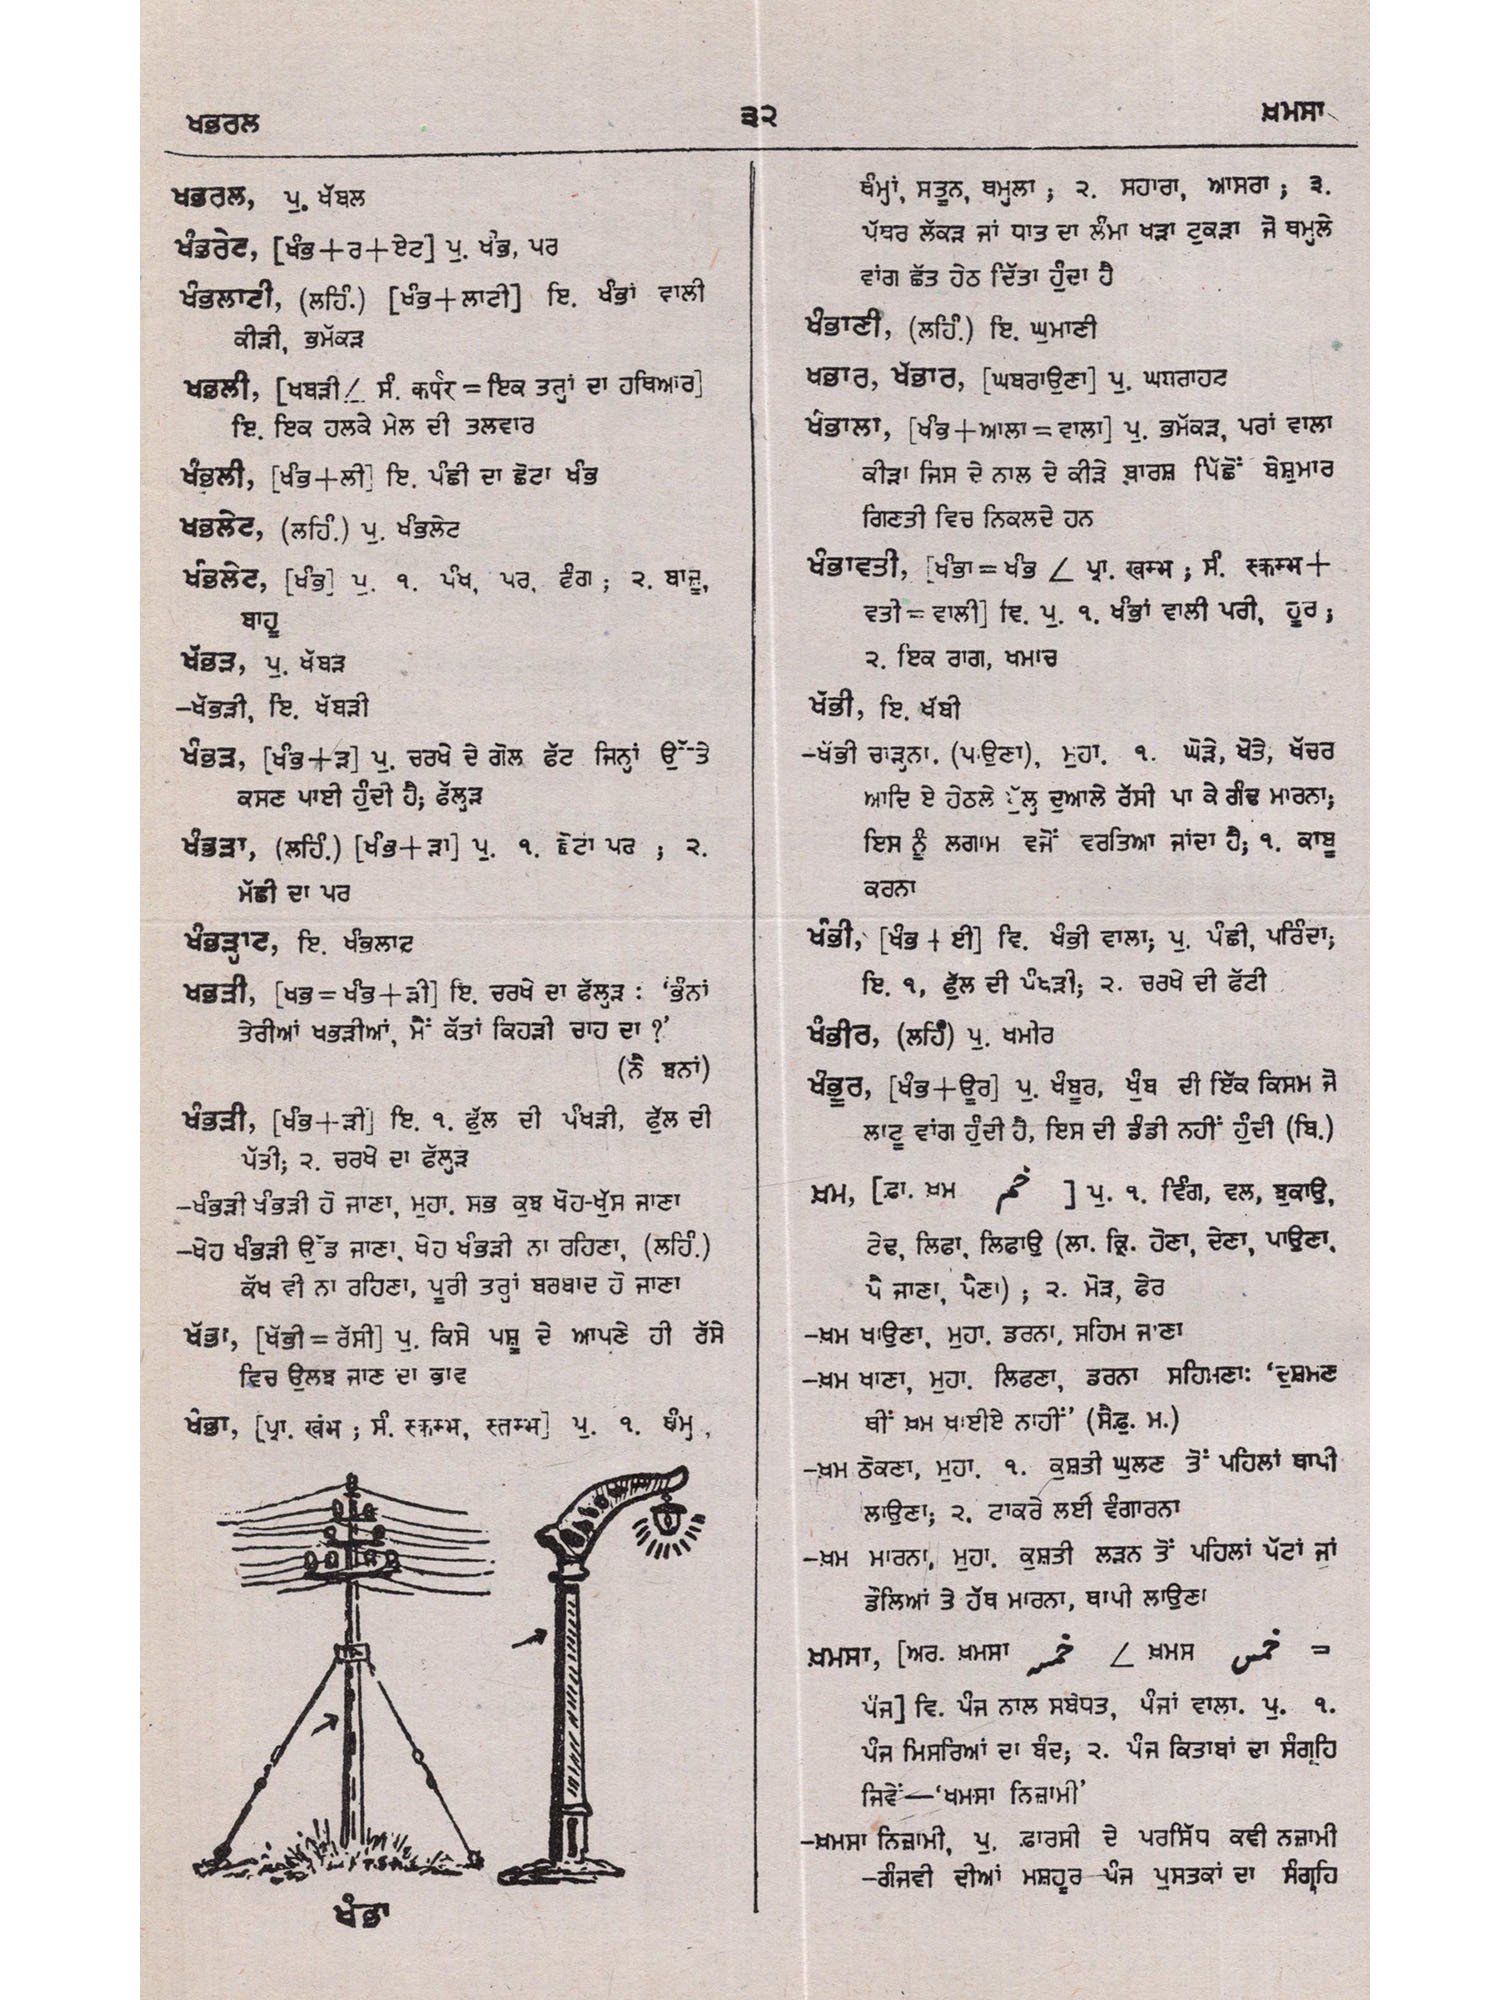 ਖਭਰਲ
੩੨
ਖ਼ਮਸਾ
ਖਭਰਲ, ਪੁ. ਖੱਬਲ
ਖੰਭਰੇਟ, [ਖੰਭ+ਰ+ਏਟ] ਪੁ. ਖੰਭ, ਪਰ
ਖੰਭਲਾਟੀ, (ਲਹਿੰ.) [ਖੰਭ+ਲਾਟੀ] ਇ. ਖੰਭਾਂ ਵਾਲੀ
ਕੀੜੀ, ਭਮੱਕੜ
ਖਭਲੀ, [ਖਬੜੀ∠ ਸੰ. कर्पर = ਇਕ ਤਰ੍ਹਾਂ ਦਾ ਹਥਿਆਰ]
ਇ. ਇਕ ਹਲਕੇ ਮੇਲ ਦੀ ਤਲਵਾਰ
ਖੰਭਲੀ, [ਖੰਭ+ਲੀ] ਇ. ਪੰਛੀ ਦਾ ਛੋਟਾ ਖੰਭ
ਖਭਲੇਟ, (ਲਹਿੰ.) ਪੁ. ਖੰਭਲੇਟ
ਖੰਭਲੇਟ, [ਖੰਭ] ਪੁ. ੧. ਪੰਖ, ਪਰ, ਵੰਗ ; ੨. ਬਾਜੂ,
ਬਾਹੂ
ਖੱਭੜ, ਪੁ. ਖੱਬੜ
–ਖੱਭੜੀ, ਇ. ਖੱਬੜੀ
ਖੰਭੜ, [ਖੰਭ+ੜ] ਪੁ. ਚਰਖੇ ਦੇ ਗੋਲ ਫੱਟ ਜਿਨ੍ਹਾਂ ਉੱਤੇ
ਕਸਣ ਪਾਈ ਹੁੰਦੀ ਹੈ; ਫੱਲ੍ਹੜ
ਖੰਭੜਾ, (ਲਹਿੰ.) [ਖੰਭ+ੜਾ] ਪੁ. ੧. ਛੋਟਾ ਪਰ ; ੨.
ਮੱਛੀ ਦਾ ਪਰ
ਖੰਭੜ੍ਹਾਟ, ਇ. ਖੰਭਲਾਟ
ਖਭੜੀ, [ਖਭ=ਖੰਭ+ੜੀ] ਇ. ਚਰਖੇ ਦਾ ਫੱਲ੍ਹੜ : ‘ਭੰਨਾਂ
ਤੇਰੀਆਂ ਖਭੜੀਆਂ, ਮੈਂ ਕੱਤਾਂ ਕਿਹੜੀ ਚਾਹ ਦਾ ?’
(ਨੈ ਝਨਾਂ)
ਖੰਭੜੀ, [ਖੰਭ+ੜੀ] ਇ. ੧. ਫੁੱਲ ਦੀ ਪੰਖੜੀ, ਫੁੱਲ ਦੀ
ਪੱਤੀ; ੨. ਚਰਖੇ ਦਾ ਫੱਲ੍ਹੜ
–ਖੰਭੜੀ ਖੰਭੜੀ ਹੋ ਜਾਣਾ, ਮੁਹਾ. ਸਭ ਕੁਝ ਖੋਹ-ਖੁੱਸ ਜਾਣਾ
–ਖੇਹ ਖੰਭੜੀ ਉੱਡ ਜਾਣਾ, ਖੇਹ ਖੰਭੜੀ ਨਾ ਰਹਿਣਾ, (ਲਹਿੰ.)
ਕੱਖ ਵੀ ਨਾ ਰਹਿਣਾ, ਪੂਰੀ ਤਰ੍ਹਾਂ ਬਰਬਾਦ ਹੋ ਜਾਣਾ
ਖੱਭਾ, [ਖੱਭੀ=ਰੱਸੀ] ਪੁ. ਕਿਸੇ ਪਸ਼ੂ ਦੇ ਆਪਣੇ ਹੀ ਰੱਸੇ
ਵਿਚ ਉਲਝ ਜਾਣ ਦਾ ਭਾਵ
ਖੰਭਾ, [ਪ੍ਰਾ. खंभ ; ਸੰ. स्कम्भ, स्तम्भ] ਪੁ. ੧. ਥੰਮ੍ਹ,
ਖੰਭਾ
ਥੰਮ੍ਹਾਂ, ਸਤੂਨ, ਥਮ੍ਹਲਾ ; ੨. ਸਹਾਰਾ, ਆਸਰਾ ; ੩.
ਪੱਥਰ ਲੱਕੜ ਜਾਂ ਧਾਤ ਦਾ ਲੰਮਾ ਖੜਾ ਟੁਕੜਾ ਜੋ ਥਮ੍ਹਲੇ
ਵਾਂਗ ਛੱਤ ਹੇਠ ਦਿੱਤਾ ਹੁੰਦਾ ਹੈ
ਖੰਭਾਣੀ, (ਲਹਿੰ.) ਇ. ਘੁਮਾਣੀ
ਖਭਾਰ, ਖੱਭਾਰ, [ਘਬਰਾਉਣਾ] ਪੁ. ਘਬਰਾਹਟ
ਖੰਭਾਲਾ, [ਖੰਭ+ਆਲਾ=ਵਾਲਾ] ਪੁ. ਭਮੱਕੜ, ਪਰਾਂ ਵਾਲਾ
ਕੀੜਾ ਜਿਸ ਦੇ ਨਾਲ ਦੇ ਕੀੜੇ ਬਾਰਸ਼ ਪਿੱਛੋਂ ਬੇਸ਼ੁਮਾਰ
ਗਿਣਤੀ ਵਿਚ ਨਿਕਲਦੇ ਹਨ
ਖੰਭਾਵਤੀ, [ਖੰਭਾ=ਖੰਭ ∠ ਪ੍ਰਾ. खम्भ ; ਸੰ. स्कम्भ+
ਵਤੀ=ਵਾਲੀ] ਵਿ. ਪੁ. ੧. ਖੰਭਾਂ ਵਾਲੀ ਪਰੀ, ਹੂਰ ;
੨. ਇਕ ਰਾਗ, ਖਮਾਚ
ਖੱਭੀ, ਇ. ਖੱਬੀ
–ਖੱਭੀ ਚਾੜ੍ਹਨਾ. (ਪਾਉਣਾ), ਮੁਹਾ. ੧. ਘੋੜੇ, ਖੋਤੇ, ਖੱਚਰ
ਆਦਿ ਏ ਹੇਠਲੇ ਦੁਆਲੇ ਰੱਸੀ ਪਾ ਕੇ ਗੰਢ ਮਾਰਨਾ;
ਇਸ ਨੂੰ ਲਗਾਮ ਵਜੋਂ ਵਰਤਿਆ ਜਾਂਦਾ ਹੈ; ੧. ਕਾਬੂ
ਕਰਨਾ
ਖੰਭੀ, [ਖੰਭ+ਈ] ਵਿ. ਖੰਭੀ ਵਾਲਾ; ਪੁ. ਪੰਛੀ, ਪਰਿੰਦਾ;
ਇ. ੧, ਫੁੱਲ ਦੀ ਪੰਖੜੀ; ੨. ਚਰਖੇ ਦੀ ਫੱਟੀ
ਖੰਭੀਰ, (ਲਹਿੰ) ਪੁ. ਖਮੀਰ
ਖੰਭੂਰ, [ਖੰਭ+ਊਰ] ਪੁ. ਖੰਬੂਰ, ਖੁੰਬ ਦੀ ਇੱਕ ਕਿਸਮ ਜੋ
ਲਾਟੂ ਵਾਂਗ ਹੁੰਦੀ ਹੈ, ਇਸ ਦੀ ਡੰਡੀ ਨਹੀਂ ਹੁੰਦੀ (ਬਿ.)
ਖ਼ਮ, [ਫ਼ਾ. ਖ਼ਮ خم ] ਪੁ. ੧. ਵਿੰਗ, ਵਲ, ਝੁਕਾਉ,
ਟੇਢ, ਲਿਫਾ, ਲਿਫਾਉ (ਲਾ. ਕ੍ਰਿ. ਹੋਣਾ, ਦੇਣਾ, ਪਾਉਣਾ,
ਪੈ ਜਾਣਾ, ਪੈਣਾ) ; ੨. ਮੋੜ, ਫੇਰ
–ਖ਼ਮ ਖਾਉਣਾ, ਮੁਹਾ. ਡਰਨਾ, ਸਹਿਮ ਜਾਣਾ
–ਖ਼ਮ ਖਾਣਾ, ਮੁਹਾ. ਲਿਫਣਾ, ਡਰਨਾ ਸਹਿਮਣਾ: ‘ਦੁਸ਼ਮਣ
ਥੀਂ ਖ਼ਮ ਖਾਈਏ ਨਾਹੀਂ’ (ਸੈਫ਼ੁ. ਮ.)
–ਖ਼ਮ ਠੋਕਣਾ, ਮੁਹਾ. ੧. ਕੁਸ਼ਤੀ ਘੁਲਣ ਤੋਂ ਪਹਿਲਾਂ ਥਾਪੀ
ਲਾਉਣਾ; ੨. ਟਾਕਰੇ ਲਈ ਵੰਗਾਰਨਾ
–ਖ਼ਮ ਮਾਰਨਾ, ਮੁਹਾ. ਕੁਸ਼ਤੀ ਲੜਨ ਤੋਂ ਪਹਿਲਾਂ ਪੱਟਾਂ ਜਾਂ
ਡੌਲਿਆਂ ਤੇ ਹੱਥ ਮਾਰਨਾ, ਥਾਪੀ ਲਾਉਣਾ
ਖ਼ਮਸਾ, [ਅਰ. ਖ਼ਮਸਾ خمسہ ∠ ਖ਼ਮਸ خمس =
ਪੰਜ] ਵਿ. ਪੰਜ ਨਾਲ ਸਬੰਧਤ, ਪੰਜਾਂ ਵਾਲਾ. ਪੁ. ੧.
ਪੰਜ ਮਿਸਰਿਆਂ ਦਾ ਬੰਦ; ੨. ਪੰਜ ਕਿਤਾਬਾਂ ਦਾ ਸੰਗ੍ਰਹਿ
ਜਿਵੇਂ—‘ਖਮਸਾ ਨਿਜ਼ਾਮੀ’
–ਖ਼ਮਸਾ ਨਿਜ਼ਾਮੀ, ਪੁ. ਫ਼ਾਰਸੀ ਦੇ ਪਰਸਿੱਧ ਕਵੀ ਨਜ਼ਾਮੀ
–ਗੰਜਵੀ ਦੀਆਂ ਮਸ਼ਹੂਰ ਪੰਜ ਪੁਸਤਕਾਂ ਦਾ ਸੰਗ੍ਰਹਿ